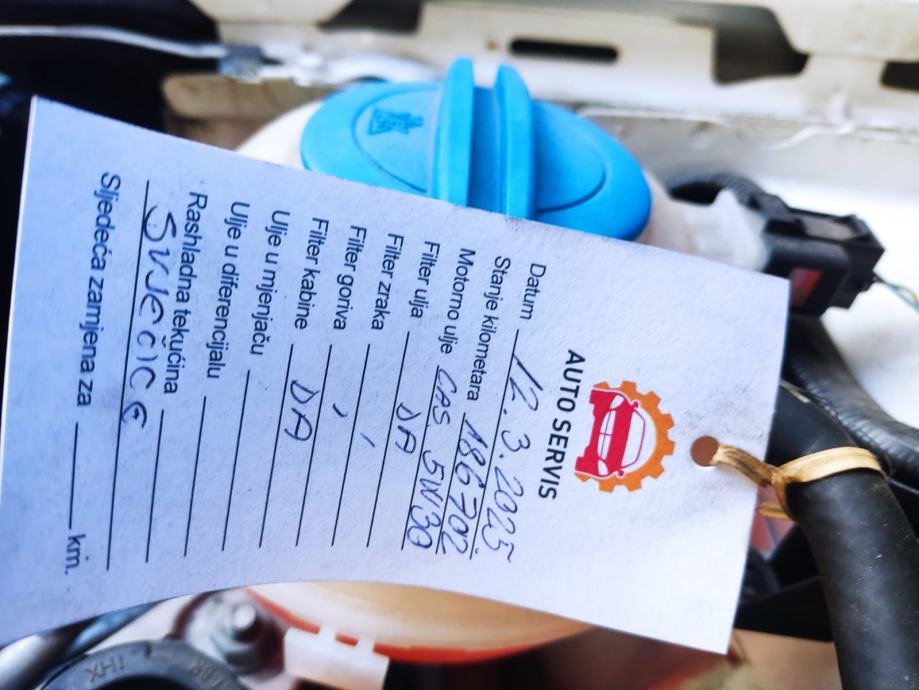 AUTO SERVIS
Datum 12.3.2025.
Stanje kilometara 186702
Motorno ulje CAS. 5W30
Filter ulja DA
Filter zraka ,
Filter goriva ,
Filter kabine DA
Ulje u mjenjaču
Ulje u diferencijalu
Rashladna tekućina
SVJEČICE
Sljedeća zamjena za km.